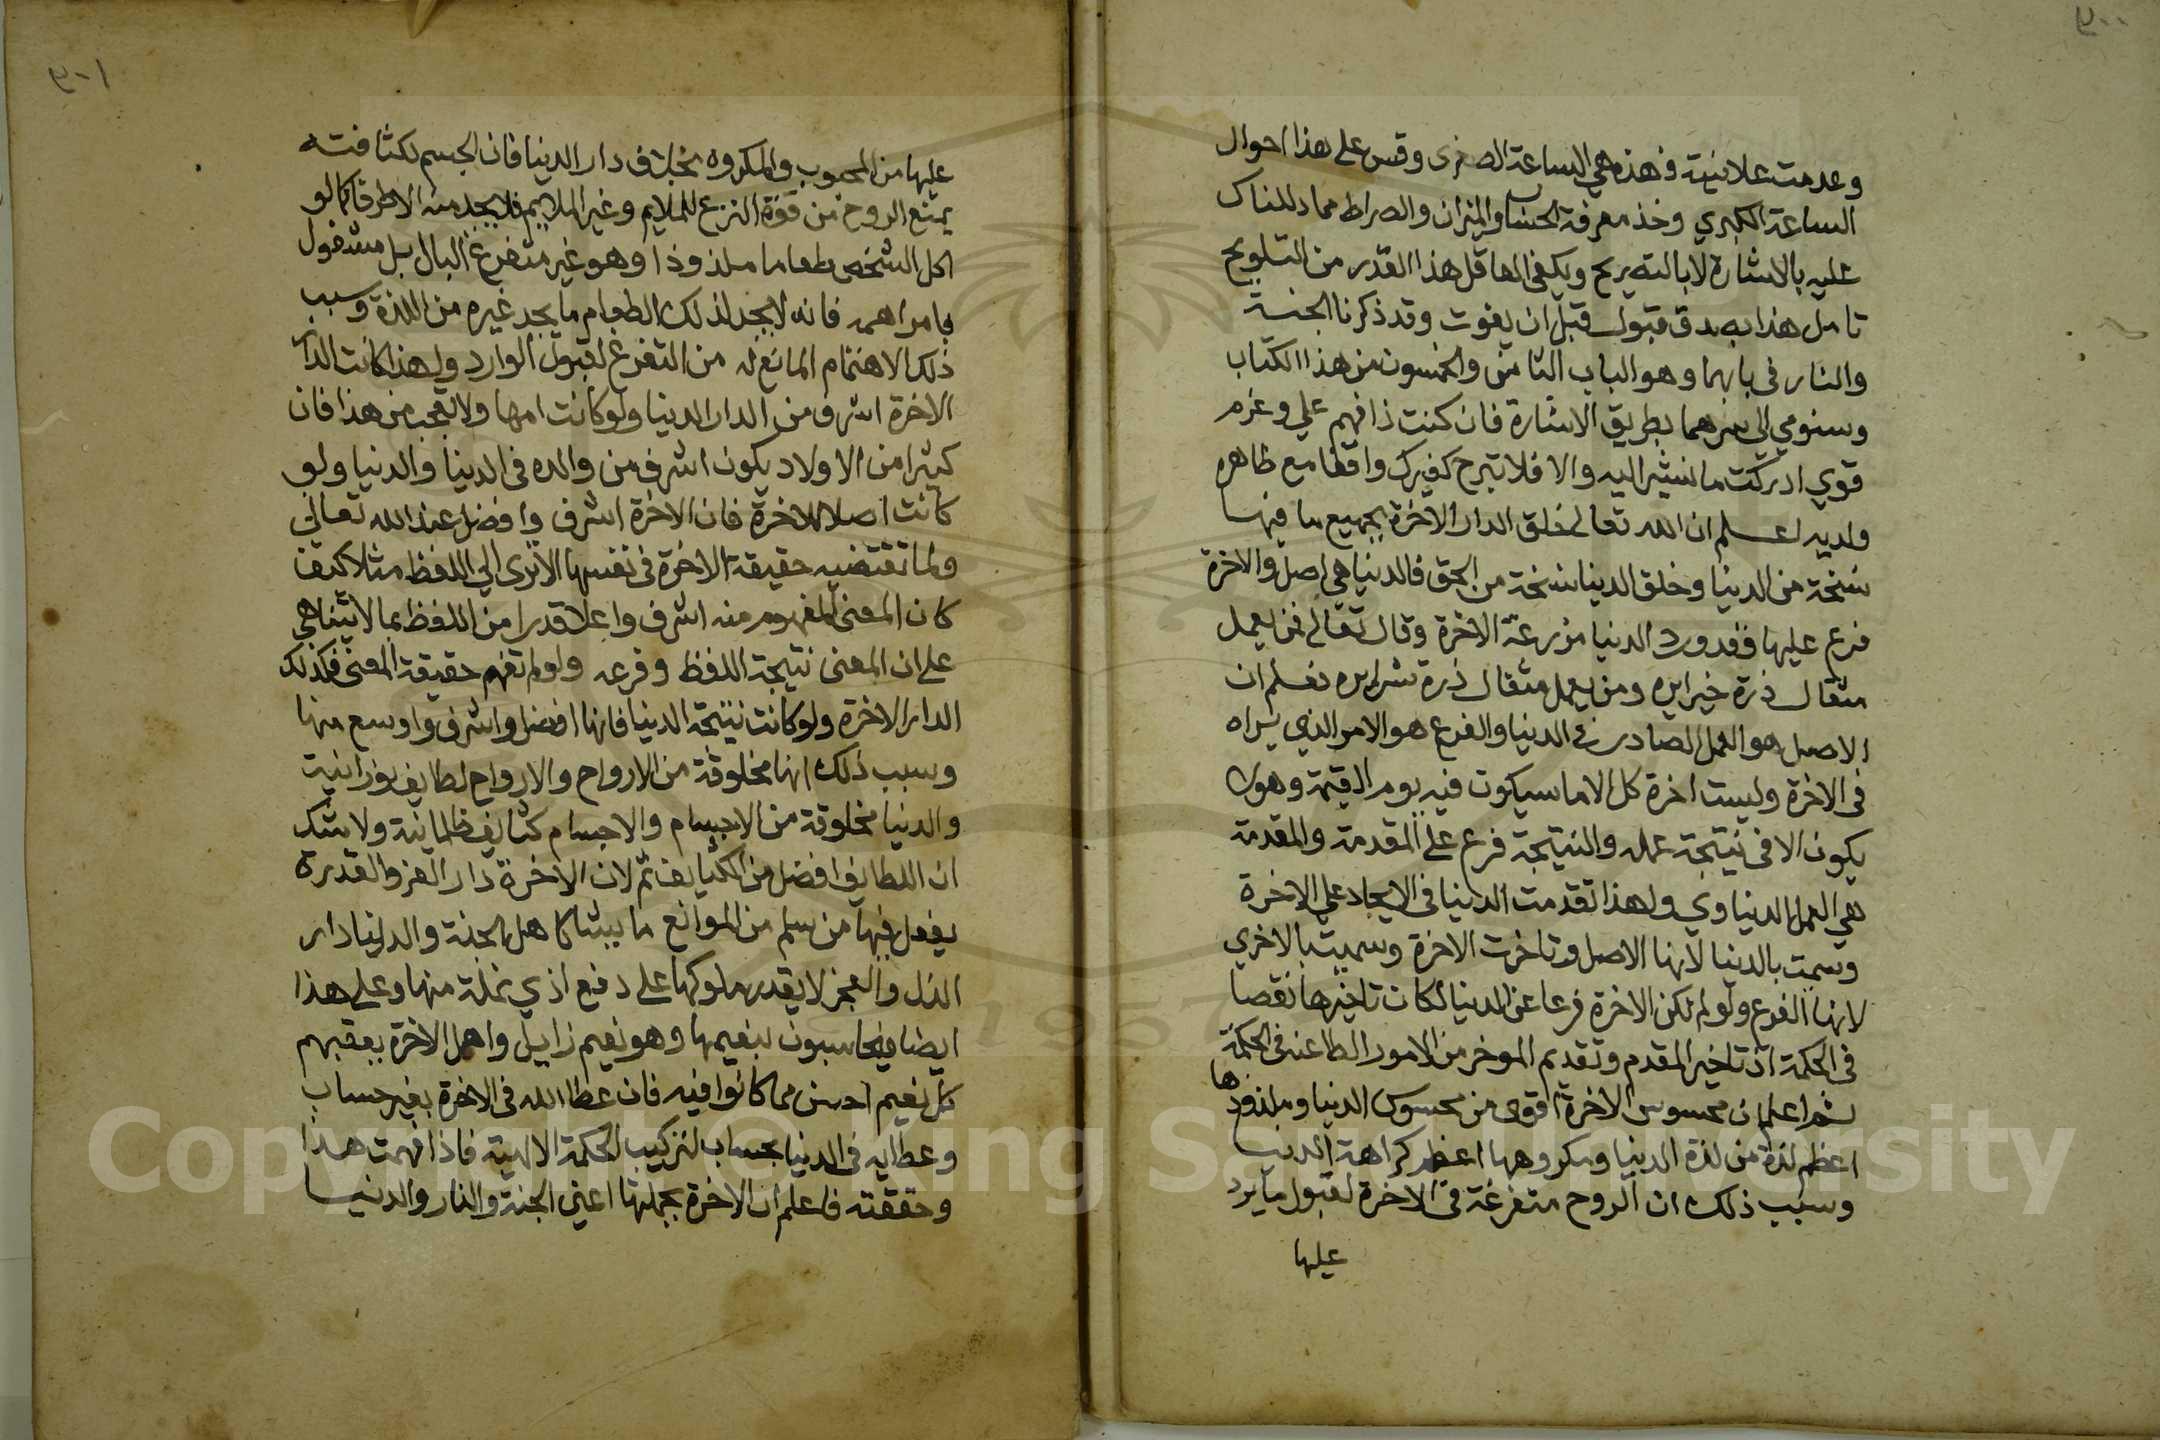 ٣٠٠
وعدمت علانيته فهذه هي الساعة الصغرى وقس على هذا احوال
الساعة الكبري وخذ معرفة الحساب والميزان والصراط مما دللناك
عليه بالاشارة لا بالتصريح ويكفي العاقل هذا القدر من التلويح
تامل هذا بصدق قبول قبل ان يفوت وقد ذكرنا الجنة
والنار في بابهما وهو الباب الثامن والخمسون من هذا الكتاب
وسنومي الي سرهما بطريق الاشارة فان كنت ذا فهم علي وعزم
قوي ادركت ما نشير اليه والا فلا تبرح كغيرك واقفا مع ظاهره
ولديه اعلم ان الله تعالى خلق الدار الاخرة بجميع ما فيها
نسخة من الدنيا وخلق الدنيا نسخة من الحق فالدنيا هي اصل والاخرة
فرع عليها فقد ورد الدنيا مزرعة الاخرة وقال تعالى فمن يعمل
مثقال ذرة خيرا يره ومن يعمل مثقال ذرة شرا يره فعلم ان
الاصل هو العمل الصادر في الدنيا والفرع هو الامر الذي يراه
في الاخرة وليست اخرة كل الا ما سيكون فيه يوم القيمة وهو لا
يكون الا في نتيجة عمله والنتيجة فرع على المقدمة والمقدمة
هي العمل الدنياوي ولهذا تقدمت الدنيا في الايجاد علي الاخرة
وسميت بالدنيا لانها الاصل وتاخرت الاخرة وسميت بالاخري
لانها الفرع ولو لم تكن الاخرة فرعا عن الدنيا لكان تاخيرها نقصا
في الحكمة اذ تاخير المقدم وتقديم الموخر من الامور الطاعنة في الحكمة
ثم اعلم ان محسوس الاخرة اقوى من محسوس الدنيا وملذوذها
اعظم لذة من لذة الدنيا ومكروهها اعظم كراهة الدنيا
وسبب ذلك ان الروح متفرغة في الاخرة لقبول ما يرد
عليها
٣٠١
عليها من المحبوب والمكروه بخلاف دار الدنيا فان الجسم لكثافته
يمنع الروح من قوة التفرغ للملايم وغير الملايم فلا يجد منه الا طرفا كما لو
اكل الشخص طعاما ملذوذا وهو غير متفرغ البال بل مشغول
بامر اهمه فانه لا يجد لذلك الطعام ما يجد غيره من اللذة وسبب
ذلك الاهتمام المانع له من التفرغ لقبول الوارد ولهذا كانت الدار
الاخرة اشرف من الدار الدنيا ولو كانت امها ولا تعجب من هذا فان
كثيرا من الاولاد يكون اشرف من والده في الدنيا والدنيا ولو
كانت اصلا للاخرة فان الاخرة اشرف وافضل عند الله تعالى
ولما تقتضيه حقيقة الاخرة في نفسها الا ترى الي اللفظ مثلا كيف
كان المعنى المفهوم منه اشرف واعلا قدرا من اللفظ بما لا يتناهي
على ان المعنى نتيجة اللفظ وفرعه ولو لم تفهم حقيقة المعنى فكذلك
الدار الاخرة ولو كانت نتيجة الدنيا فانها افضل واشرف واوسع منها
وسبب ذلك انها مخلوقة من الارواح والارواح لطايف نورانية
والدنيا مخلوقة من الاجسام والاجسام كثايف ظلمانية ولا يشك
ان اللطايف افضل من الكثايف ثم لان الاخرة دار العز والقدرة
يفعل فيها من سلم من الموانع ما يشا كاهل الجنة والدنيا دار
الذل والعجز لا يقدر ملوكها على دفع اذي نملة منها وعلى هذا
ايضا فيحاسبون بنعيمها وهو نعيم زايل واهل الاخرة يعقبهم
كل نعيم احسن مما كانوا فيه فان عطا الله في الاخرة بغير حساب
وعطاؤه في الدنيا بحساب لتركيب الحكمة الالهية فاذا فهمت هذا
وحققته فاعلم ان الاخرة بجملتها اعني الجنة والنار والدنيا
Copyright © King Saud University
1957